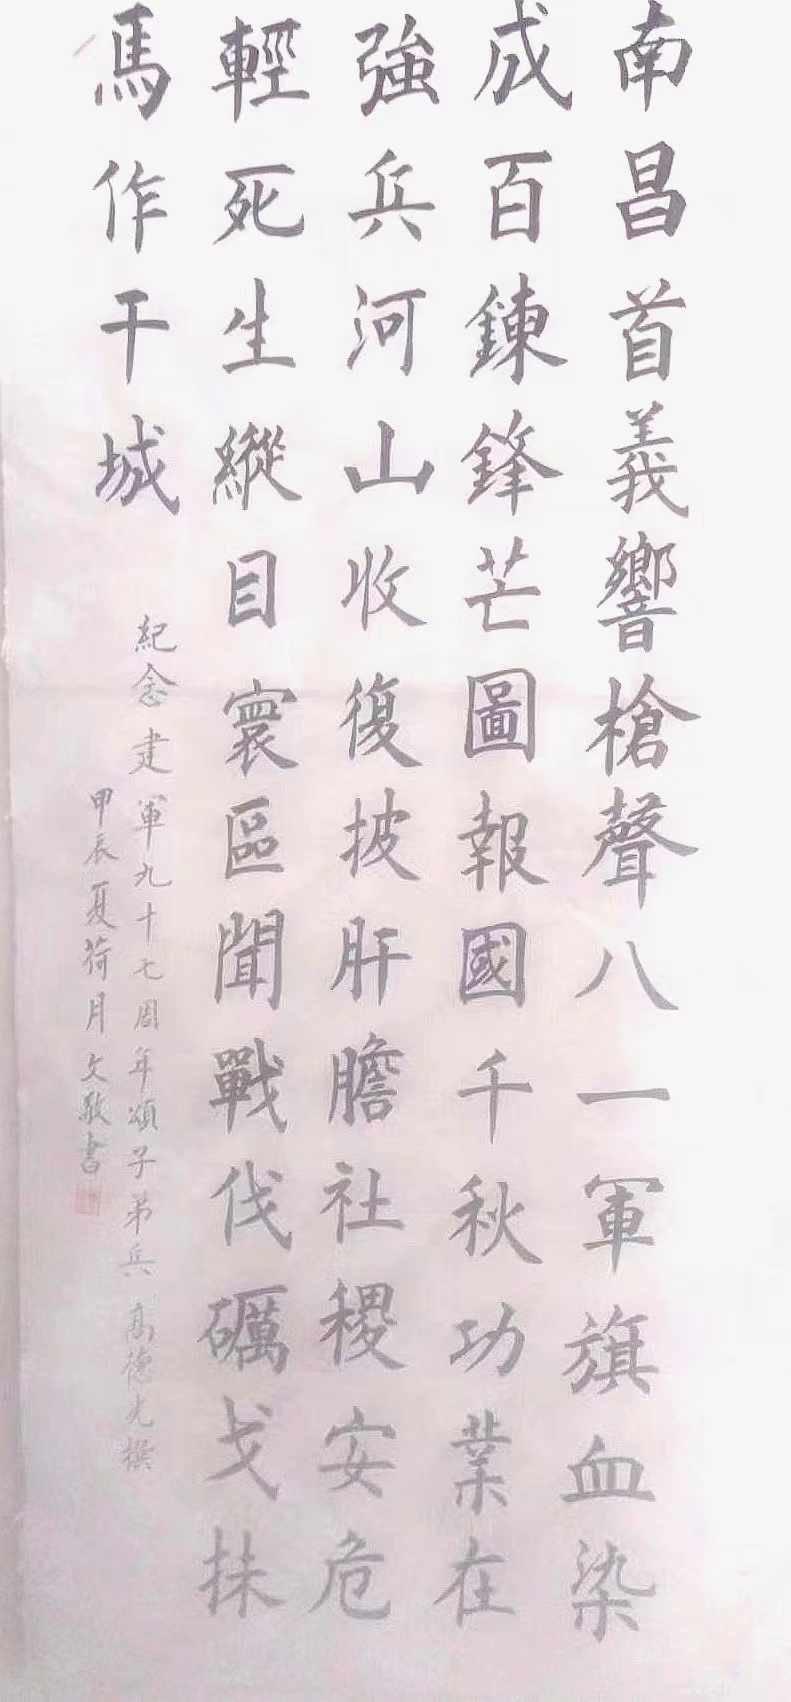 南昌首義響槍聲八一軍旗血染
成百鍊鋒芒圖報國千秋功業在
強兵河山收復披肝膽社稷安危
輕死生縱目寰區聞戰伐礪戈抹
馬作干城
紀念建軍九十七周年頌子弟兵 高德光撰
甲辰夏荷月文敬書